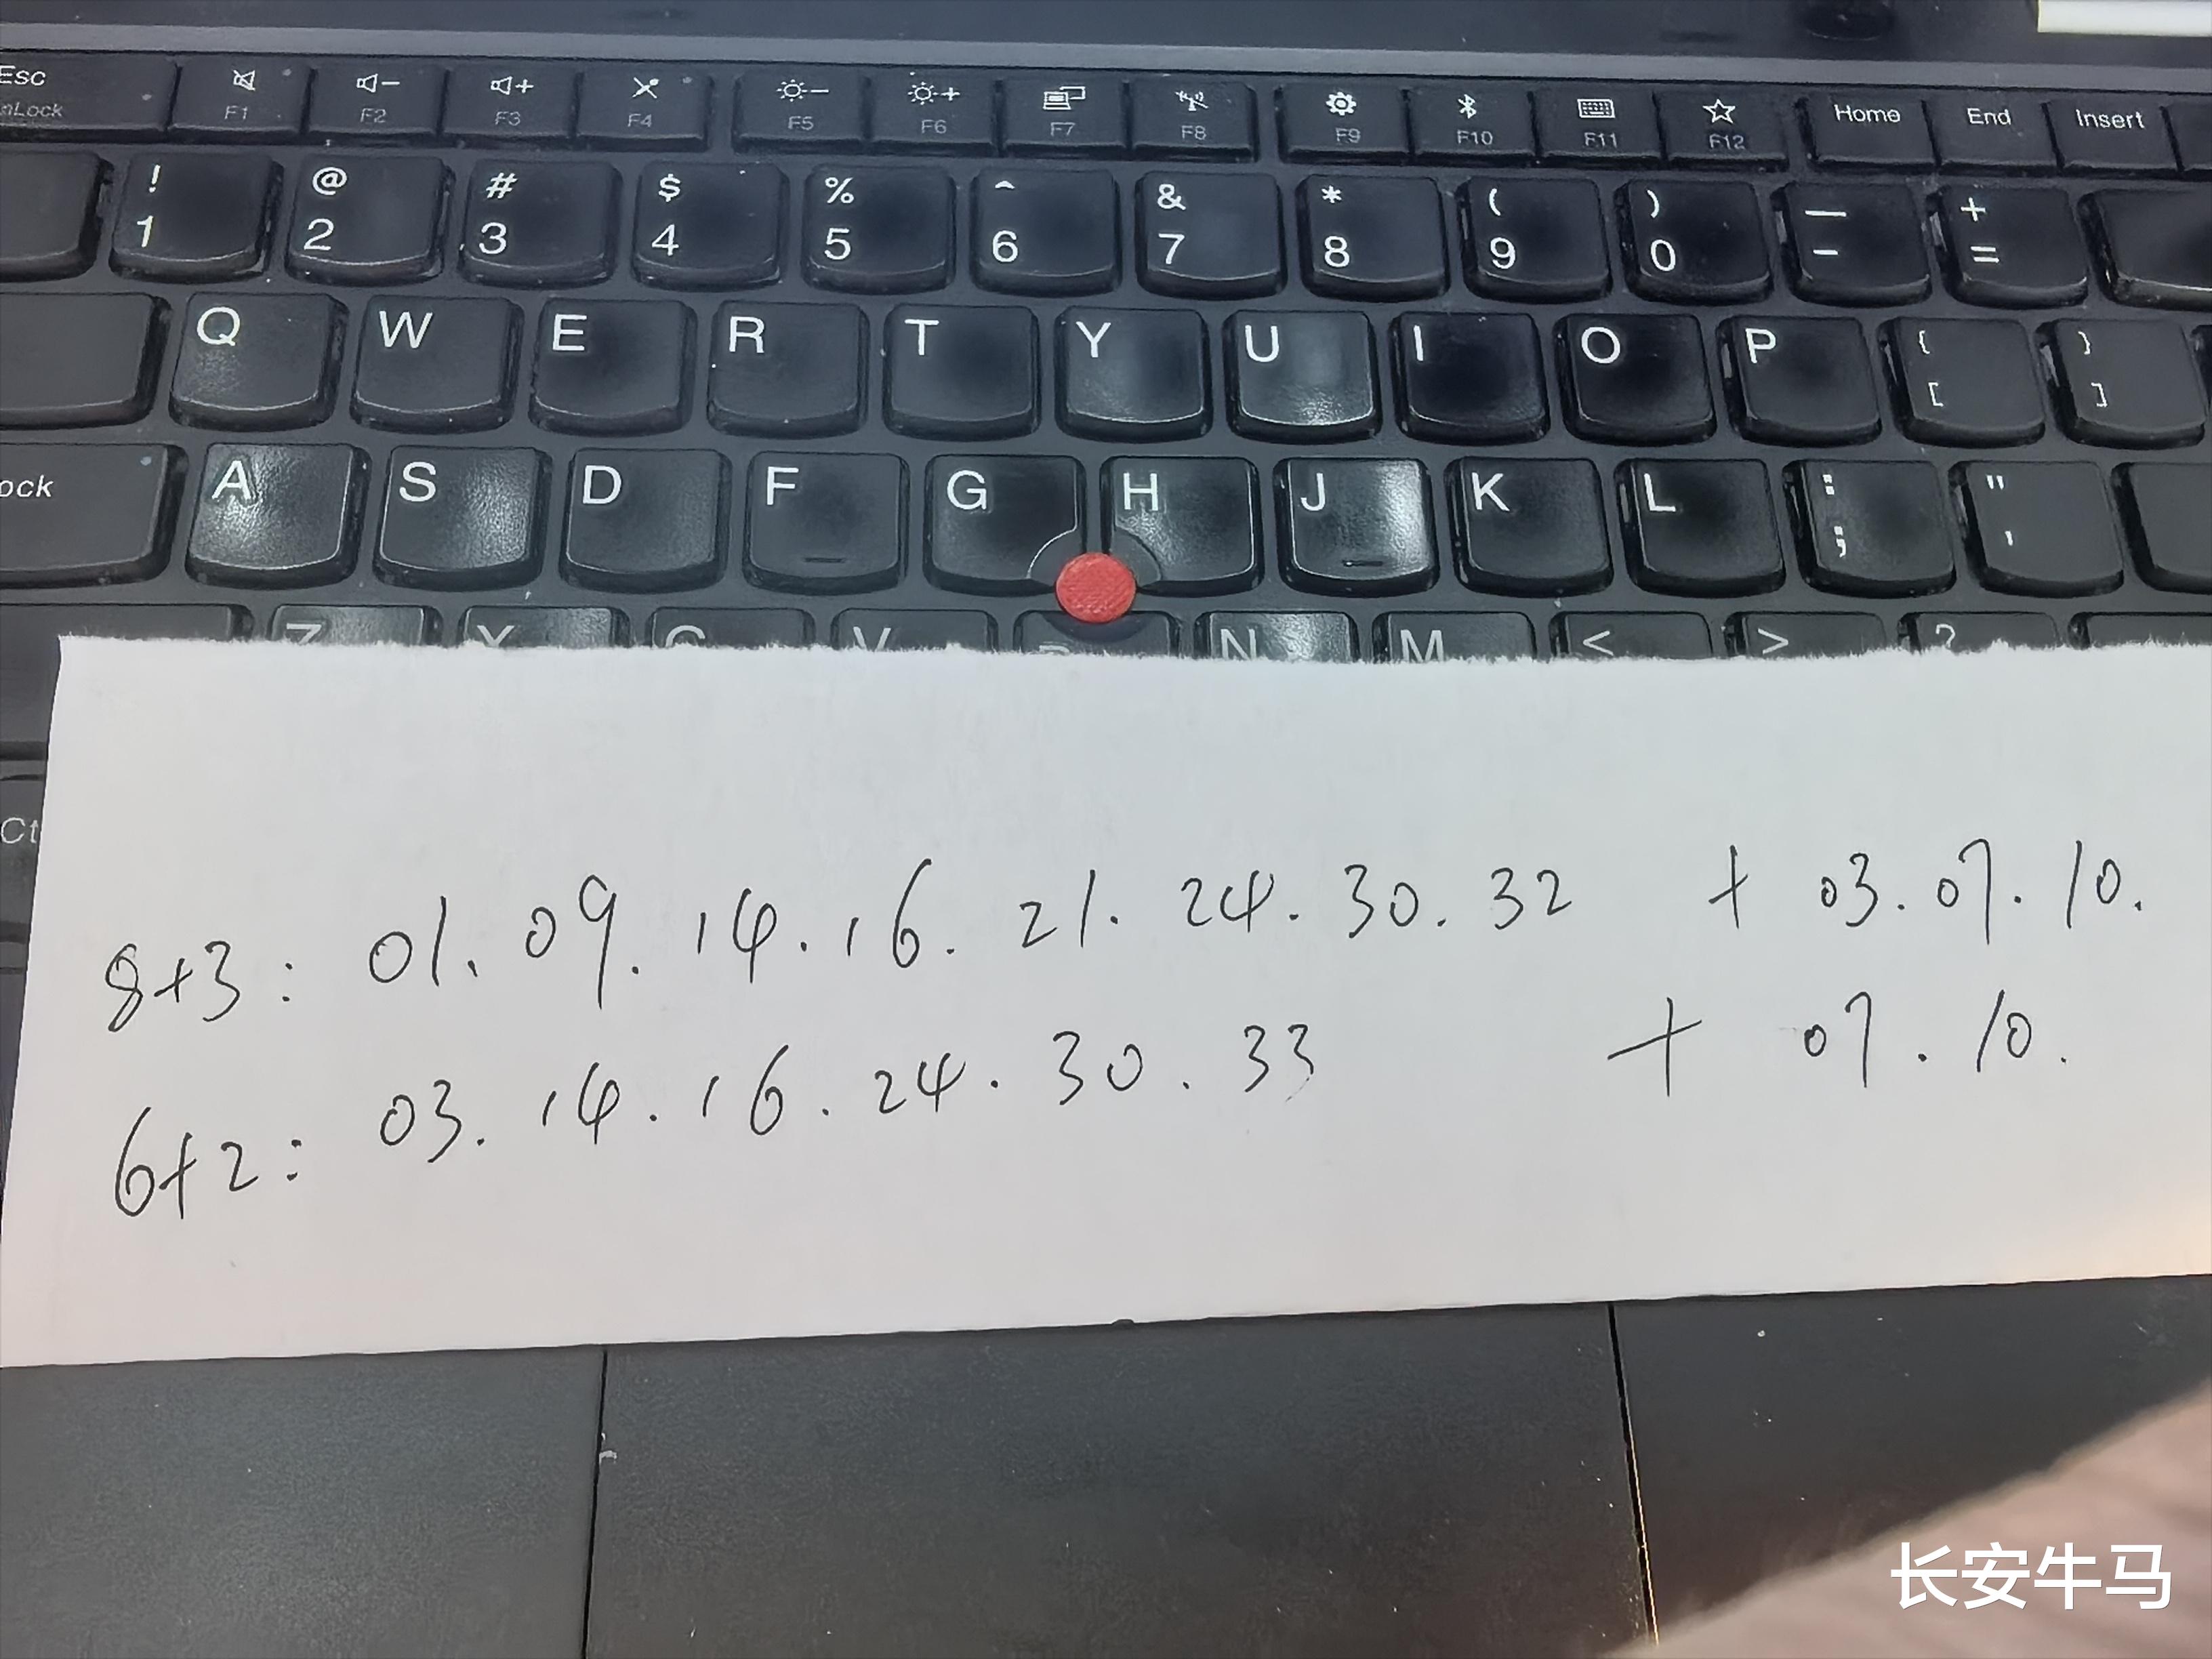 Esc F1 F2 F3 F4 F5 F6 F7 F8 F9 F10 F11 F12 Home End Insert
nLock
! @ # $ % ^ & * ( ) — +
1 2 3 4 5 6 7 8 9 0 - =
Q W E R T Y U I O P { }
[ ]
ock A S D F G H J K L : "
; ,
N M < > ?
Ct
8+3: 01. 09. 14. 16. 21. 24. 30. 32 + 03. 07. 10.
6+2: 03. 14. 16. 24. 30. 33 + 07. 10.
长安牛马